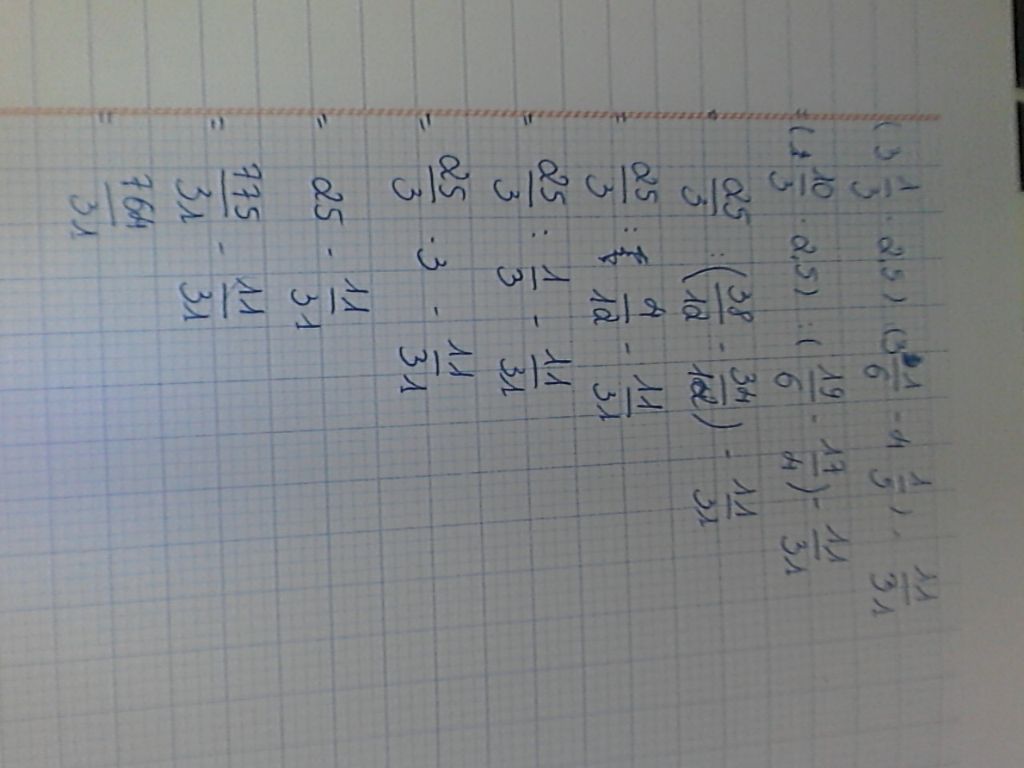 (3 1/3 · 2,5) : (3 1/6 - 4 1/5) - 11/31
= (10/3 · 2,5) : (19/6 - 17/4) - 11/31
= 25/3 : (38/12 - 34/12) - 11/31
= 25/3 : 4/12 - 11/31
= 25/3 : 1/3 - 11/31
= 25/3 · 3 - 11/31
= 25 - 11/31
= 775/31 - 11/31
= 764/31